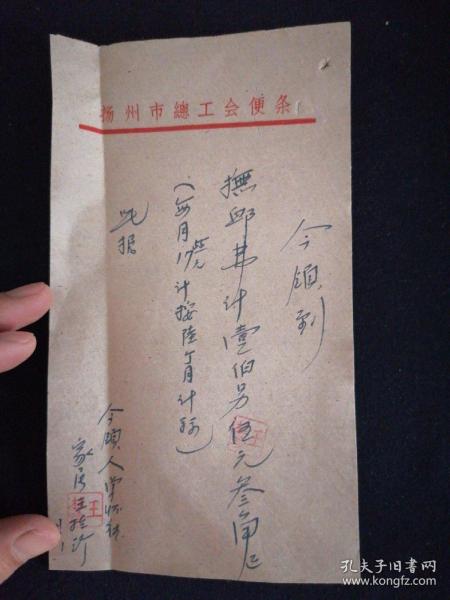 扬州市總工会便条
今領到
撫邺费计壹佰另伍元叁角正
(每月17.55元计按陆个月计算)
此据
今領人
家属王
孔夫子旧书网
www.kongfz.com